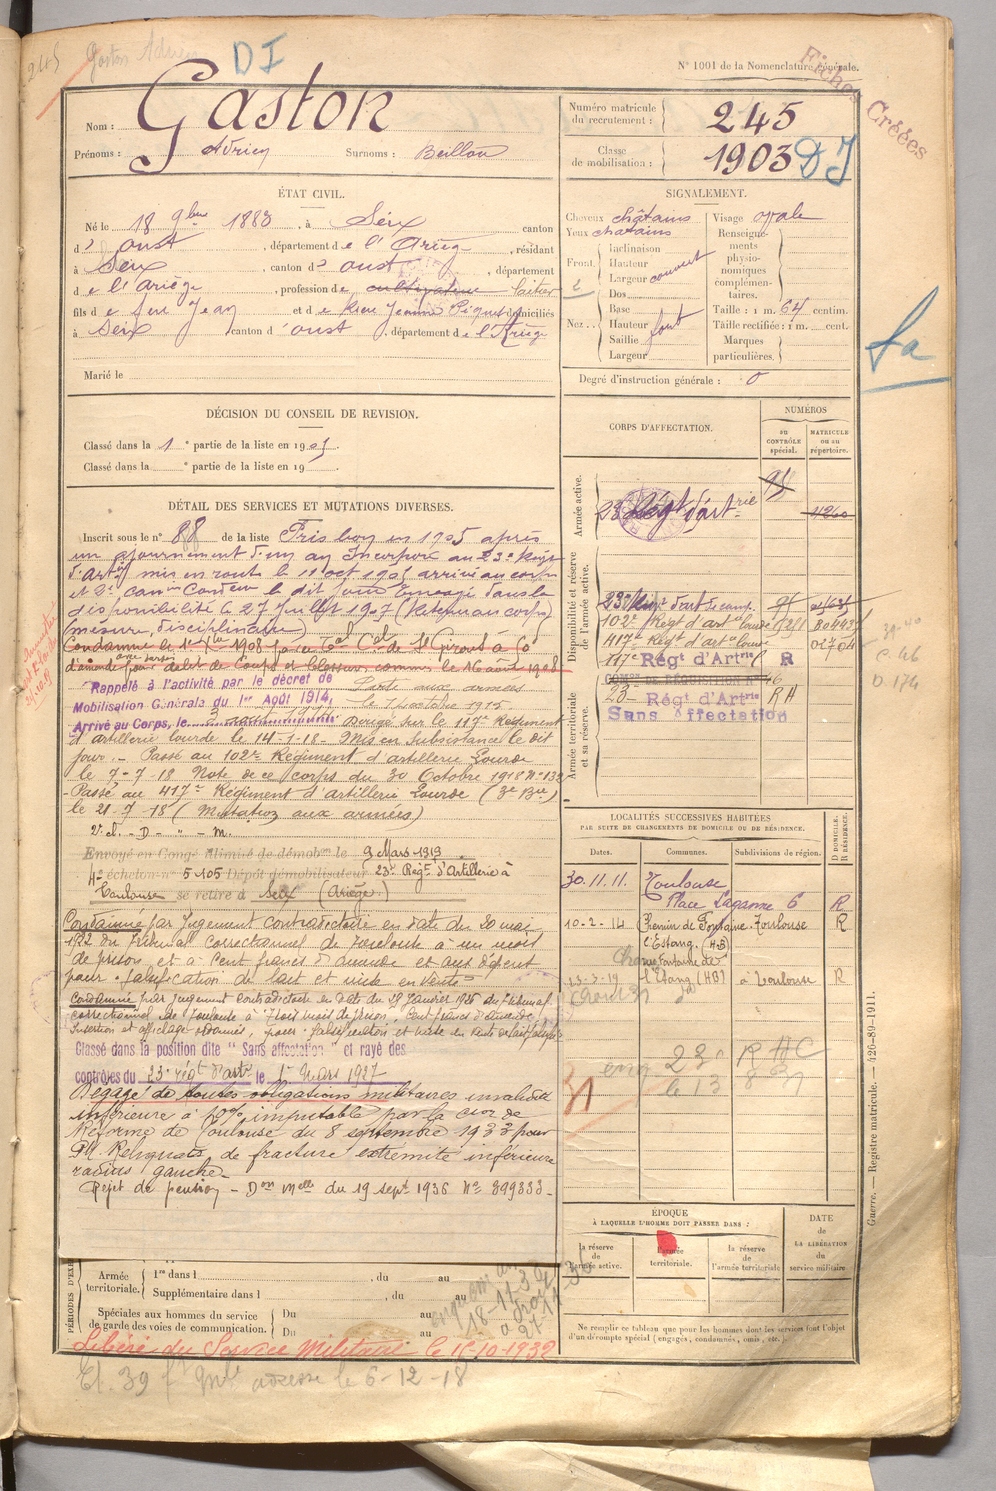 245
Gaston Adrien
DI
N° 1001 de la Nomenclature générale.
Fiches Créées
Nom : Gaston
Prénoms : Adrien Surnoms : Beillou
Numéro matricule du recrutement : 245
Classe de mobilisation : 1903 DI
ÉTAT CIVIL.
Né le 18 9bre 1883, à Seix canton
d' oust, département de l'Ariège, résidant
à Seix, canton d' oust, département
de l'Ariège, profession de cultivateur laitier
fils de feu Jean et de Jeanne domiciliés
à Seix canton d' oust, département de l'Ariège
Marié le
SIGNALEMENT.
Cheveux châtains
Yeux chatains
Front.
Inclinaison
Hauteur
Largeur couvert
Nez.
Dos
Base
Hauteur fort
Saillie
Largeur
Visage ovale
Renseignements physionomiques complémentaires.
Taille : 1 m. 64 centim.
Taille rectifiée : 1 m. cent.
Marques particulières.
Degré d'instruction générale : 0
Sa
DÉCISION DU CONSEIL DE REVISION.
Classé dans la 1e partie de la liste en 1905.
Classé dans la e partie de la liste en 19
DÉTAIL DES SERVICES ET MUTATIONS DIVERSES.
Inscrit sous le n° 88 de la liste Pris bon en 1905 après
un ajournement d'un an Incorporé au 23e Régt
d'Artie mis en route le 11 oct 1905 arrivé au corps
et 2e canr Condr le dit jour Envoyé dans la
disponibilité le 27 Juillet 1907 (Retenu au corps)
(mesure disciplinaire)
Condamné le 1908 par le de St Girons à 50
d'amende avec sursis pour délit de Coups et blessures commis le 16 août 1908
Rappelé à l'activité par le décret de
Mobilisation Générale du 1er Août 1914,
Parti aux armées
le 7 octobre 1915.
Arrivé au Corps, le 3 Dirigé sur le 117e Régiment
d'artillerie lourde le 14-1-18- Mis en subsistance le dit
jour.- Passé au 102e Régiment d'artillerie Lourde
le 7-7-18 Note de ce corps du 30 Octobre 1918 N° 132
- Passé au 417e Régiment d'artillerie Lourde (3e Bie)
le 21-7-18 (Mutation aux armées)
2e cl.- D- " - M.
Envoyé en Congé illimité de démobon le 9 Mars 1919
4e échelon n° 5105 Dépôt démobilisateur 23e Régt d'Artillerie à
Toulouse se retire à Seix (Ariège)
Condamné par Jugement contradictoire en date du 20 mai
1922 du Tribunal correctionnel de Toulouse à un mois
de prison et à Cent francs d'amende et aux dépens
pour : falsification de lait et mise en vente
Condamné par Jugement contradictoire en date du 29 Janvier 1925 du Tribunal
correctionnel de Toulouse à Trois mois de prison, Cent francs d'amende
Insertion et affichage ordonnés, pour : falsification et mise en vente de lait falsifié
Classé dans la position dite " Sans affectation " et rayé des
contrôles du 23e régt d'arte le 1er Mars 1927
Dégagé de toutes obligations militaires invalidité
inférieure à 10% imputable par la cion de
Réforme de Toulouse du 8 septembre 1933 pour
Reliquats de fracture extrémité inférieure
radius gauche-
Rejet de pension - Don Melle du 19 sept 1936 N° 899333-
CORPS D'AFFECTATION.
NUMÉROS
au CONTRÔLE spécial.
MATRICULE ou au répertoire.
Armée active.
23e Régt d'artrie
Disponibilité et réserve de l'armée active.
23e Régt d'art de camp.
102e Régt d'art ie lourde
417e Régt d'art ie lourde
117e Régt d'Artrie R
COMon DE RÉQUISITION N° 46
Armée territoriale et sa réserve.
23e Régt d'Artrie RA
Sans Affectation
D. 174
LOCALITÉS SUCCESSIVES HABITÉES
PAR SUITE DE CHANGEMENTS DE DOMICILE OU DE RÉSIDENCE.
Dates. Communes. Subdivisions de région. D DOMICILE. R RÉSIDENCE.
30.11.11. Toulouse
Place Laganne 6 R
10-2-14 Chemin de Fontaine Toulouse R
l'Estang. (H-G)
Fontaine de
13-3-19 l'Estang (HG) à Toulouse R
ÉPOQUE
À LAQUELLE L'HOMME DOIT PASSER DANS :
la réserve de l'armée active.
l'armée territoriale.
la réserve de l'armée territoriale
DATE DE LA LIBÉRATION du service militaire.
Ne remplir ce tableau que pour les hommes dont les services font l'objet
d'un décompte spécial (engagés, condamnés, omis, etc.)
PÉRIODES D'EXE
Armée territoriale.
1re dans l , du au
Supplémentaire dans l , du au
Spéciales aux hommes du service de garde des voies de communication.
Du au
Du au
18-11-36
Libéré du Service Militaire le 15-10-1932
adresse le 6-12-18
Guerre. — Registre matricule. — 426-89-1911.